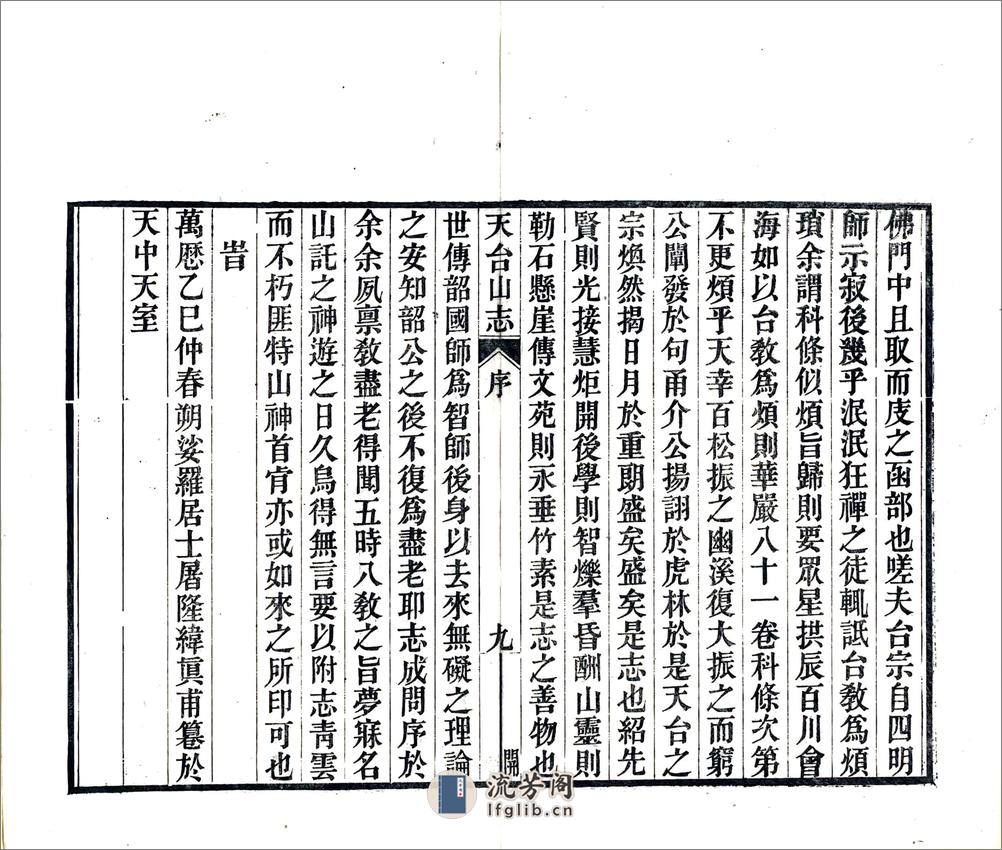 佛門中且取而庋之函部也嗟夫台宗自四明
師示寂後幾乎泯泯狂禪之徒輒詆台教為煩
瑣余謂科條似煩旨歸則要眾星拱辰百川會
海如以台教為煩則華嚴八十一卷科條次第
不更煩乎天幸百松振之幽溪復大振之而窮
公闡發於句甬介公揚詡於虎林於是天台之
宗煥然揭日月於重朗盛矣盛矣是志也紹先
賢則光接慧炬開後學則智爍羣昏酬山靈則
勒石懸崖傳文苑則永垂竹素是志之善物也
天台山志 序 九
世傳韶國師為智師後身以去來無礙之理論
之安知韶公之後不復為盡老耶志成問序於
余余夙稟教盡老得聞五時八教之旨夢寐名
山託之神遊之日久烏得無言要以附志青雲
而不朽匪特山神首肯亦或如來之所印可也
旹
萬曆乙巳仲春朔娑羅居士屠隆緯真甫篹於
天中天室
流芳阁
lfglib.cn